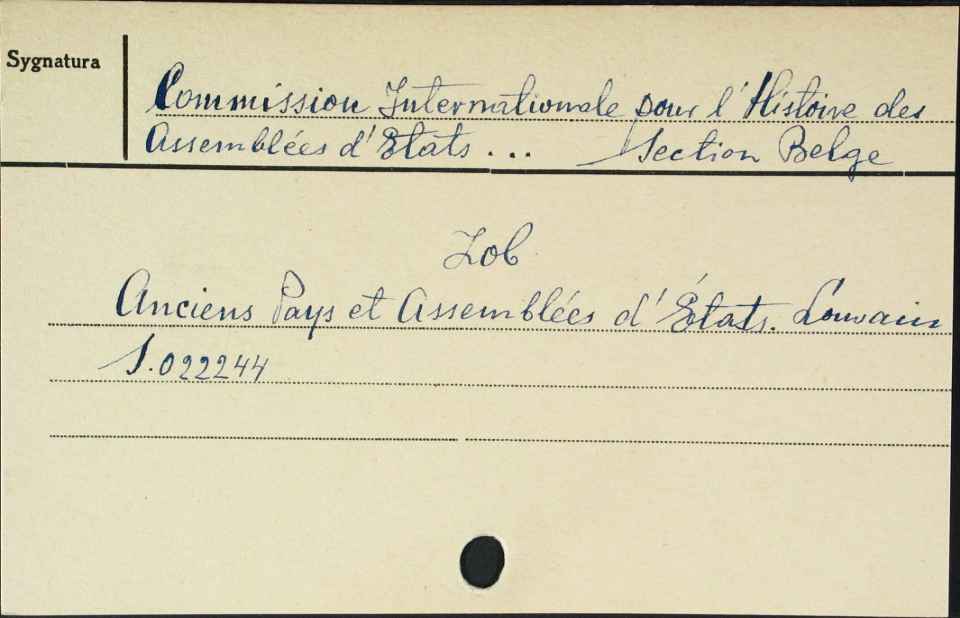 Sygnatura
Commission Internationale pour l'Histoire des
Assemblées d'Etats ... Section Belge
Zob
Anciens Pays et Assemblées d'États. Louvain
S.022244